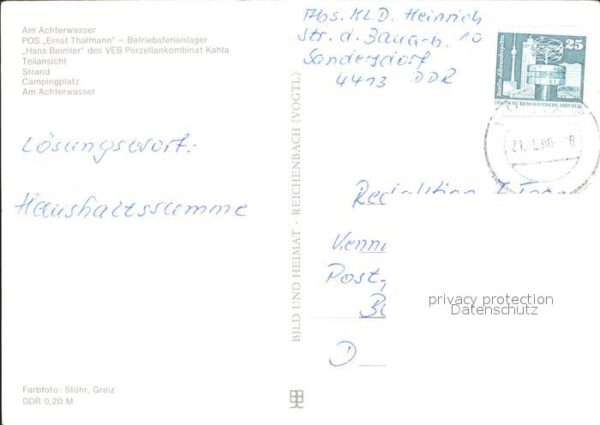 Am Achterwasser
POS „Ernst Thälmann" – Betriebsferienlager
„Hans Beimler" des VEB Porzellankombinat Kahla
Teilansicht
Strand
Campingplatz
Am Achterwasser
Abs. KL. D. Heinrich
Str. d. Bauarb. 10
Sandersdorf
4413 DDR
25
DEUTSCHE DEMOKRATISCHE REPUBLIK
Lösungswort:
Haushaltssumme
BILD UND HEIMAT · REICHENBACH (VOGTL)
Redaktion
Post
D
privacy protection
Datenschutz
Farbfoto: Stöhr, Greiz
DDR 0,20 M